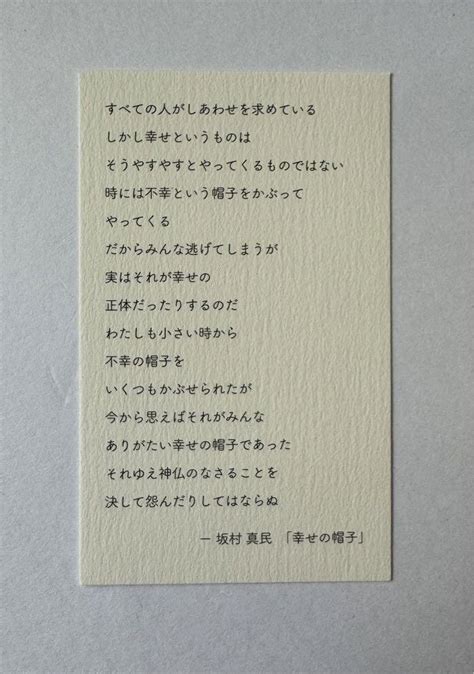 すべての人がしあわせを求めている
しかし幸せというものは
そうやすやすとやってくるものではない
時には不幸という帽子をかぶって
やってくる
だからみんな逃げてしまうが
実はそれが幸せの
正体だったりするのだ
わたしも小さい時から
不幸の帽子を
いくつもかぶせられたが
今から思えばそれがみんな
ありがたい幸せの帽子であった
それゆえ神仏のなさることを
決して怨んだりしてはならぬ
― 坂村 真民 「幸せの帽子」